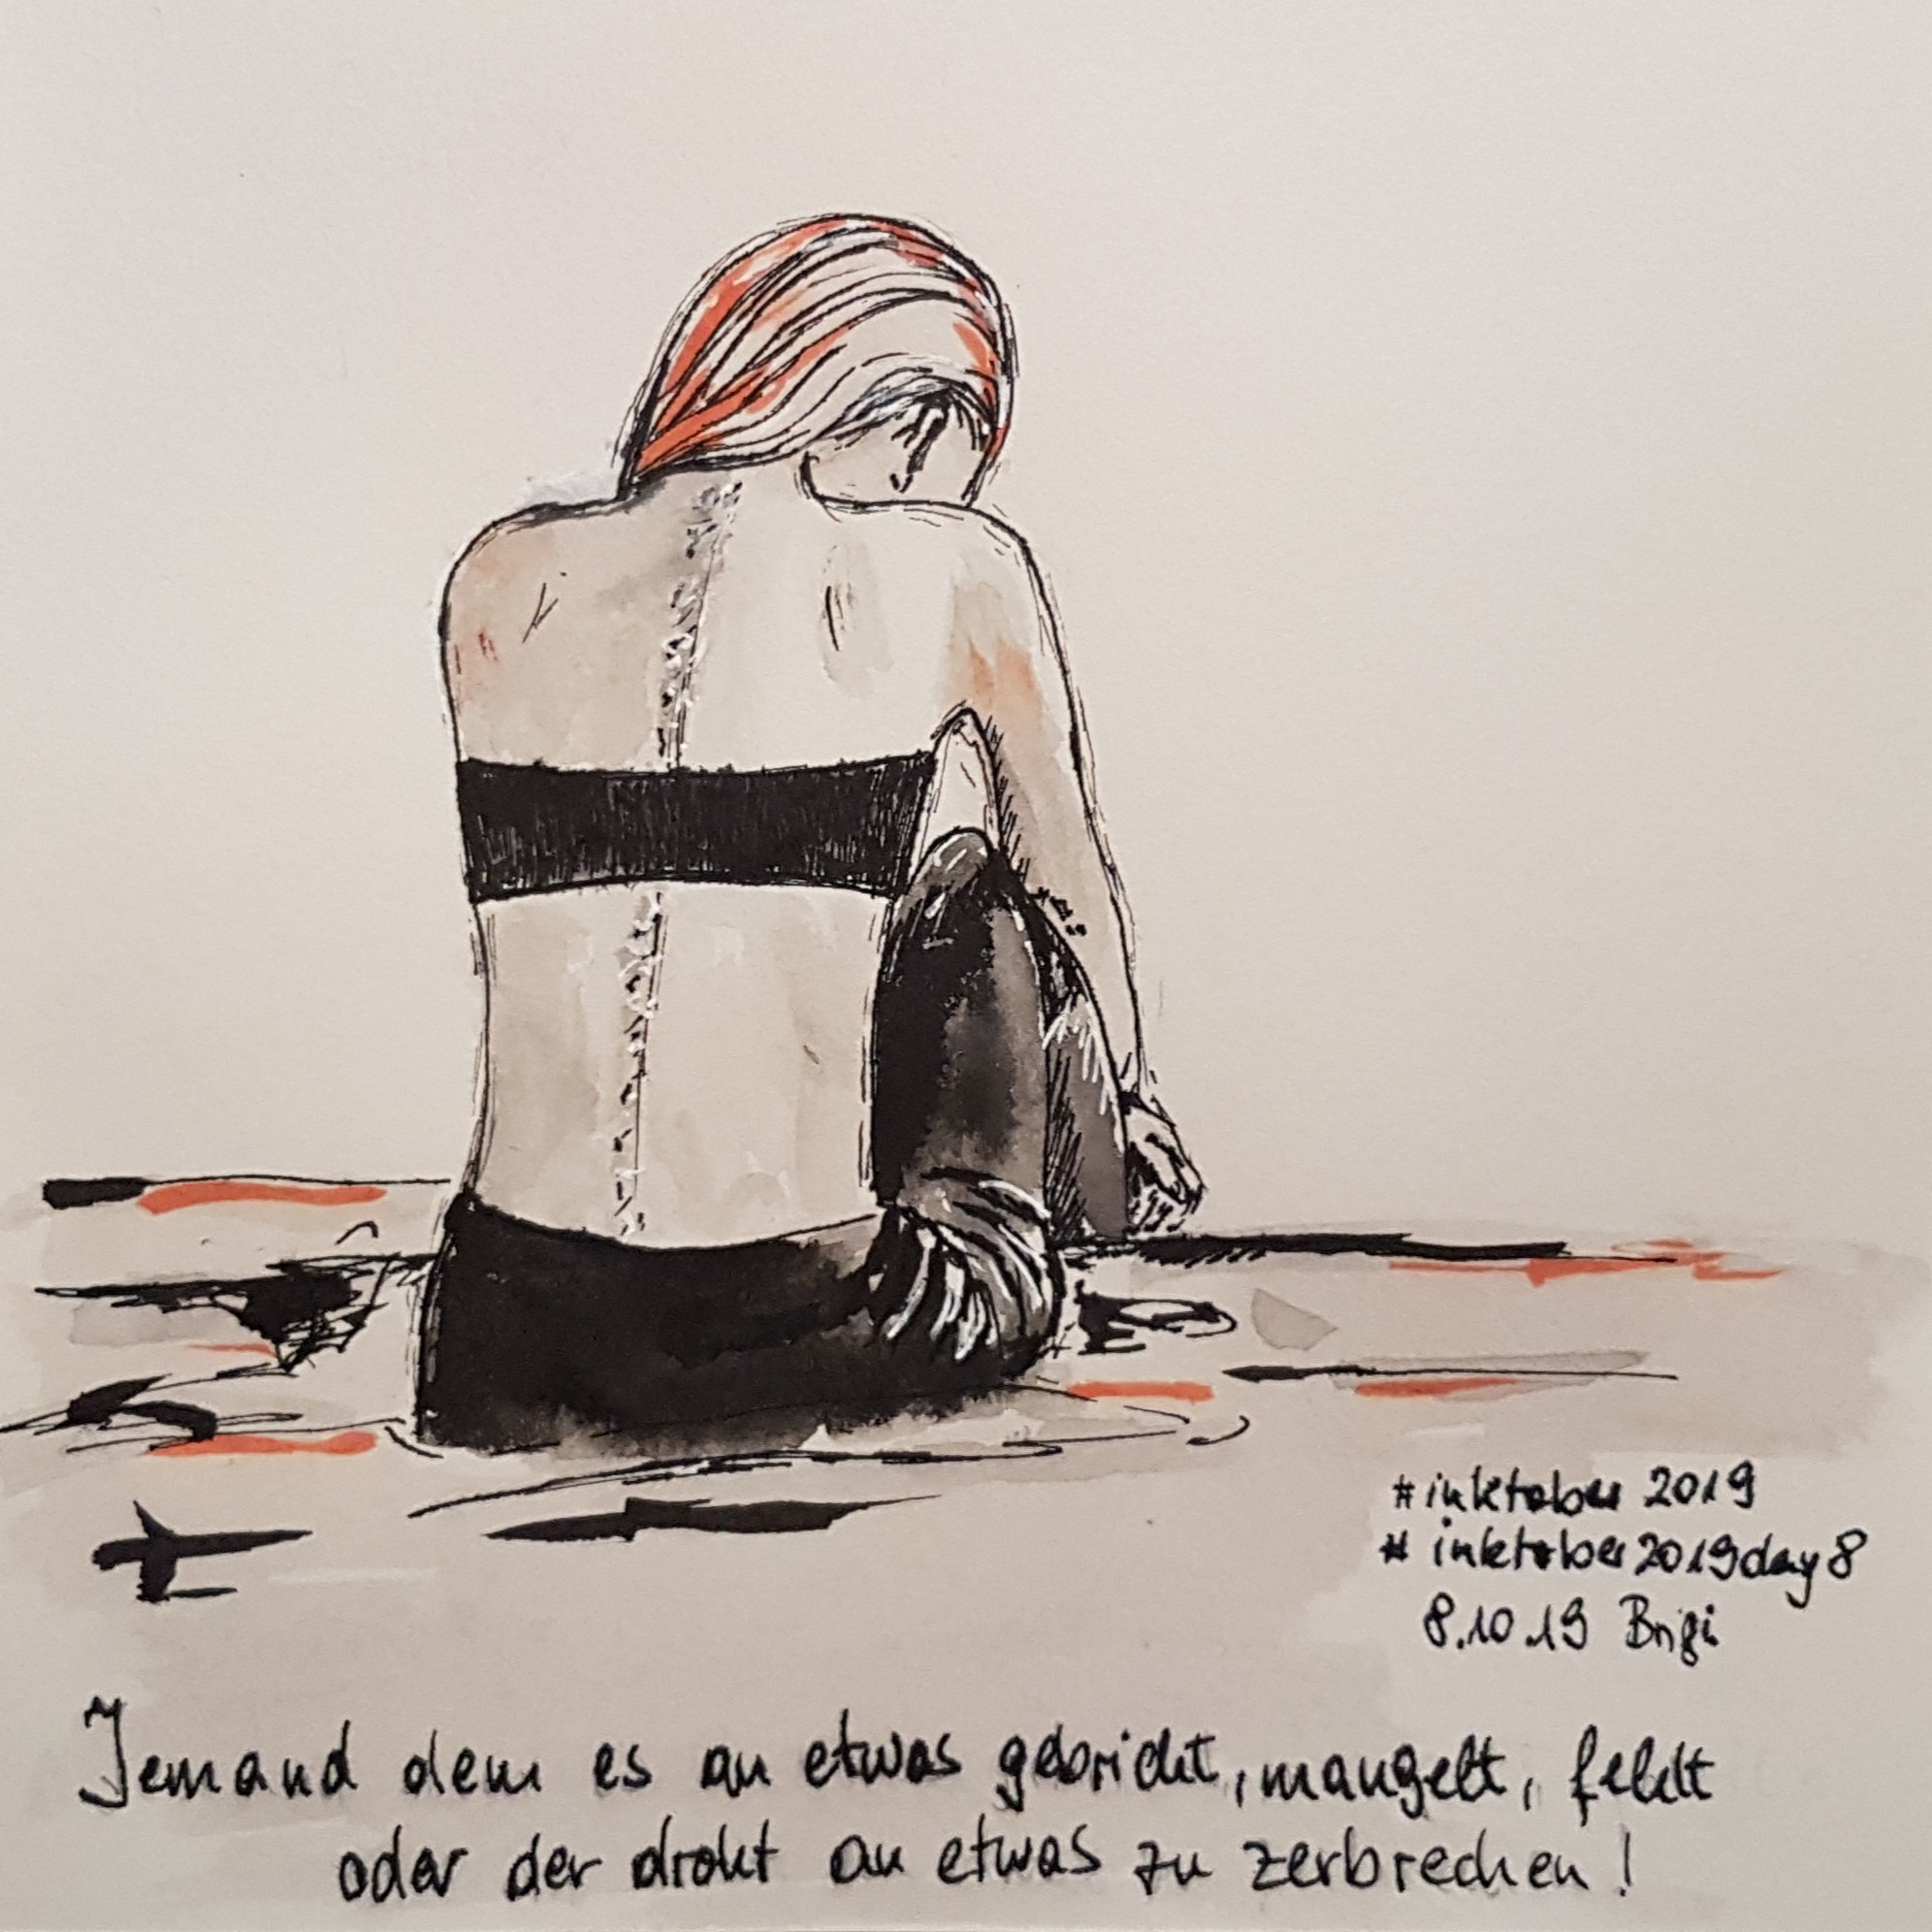 #inktober 2019
#inktober2019day8
8.10.19 Brigi
Jemand dem es an etwas gebricht, mangelt, fehlt
oder der droht an etwas zu zerbrechen!